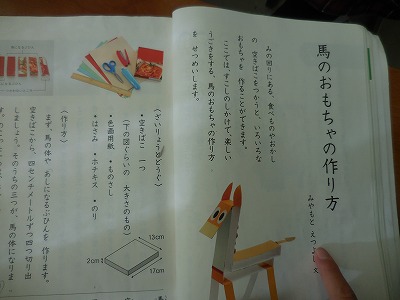 馬のおもちゃの作り方
みやもと えつよし
え
みの回りにある、食べものやおかし
の 空きばこをつかうと、いろいろな
おもちゃを 作ることができます。
ここでは、すこしのしかけで、楽しい
うごきをする、馬のおもちゃの作り方
を、せつめいします。
〈ざいりょうとどうぐ〉
・空きばこ 一つ
(下の図ぐらいの 大きさのもの)
・色画用紙 ・ものさし
・はさみ ・ホチキス ・のり
13cm
2cm
17cm
〈作り方〉
まず、馬の体や あしになるぶひんを 作ります。
空きばこから、四センチメートルずつ 四つ切り出
しましょう。そのうちの三つが、馬の体になりま